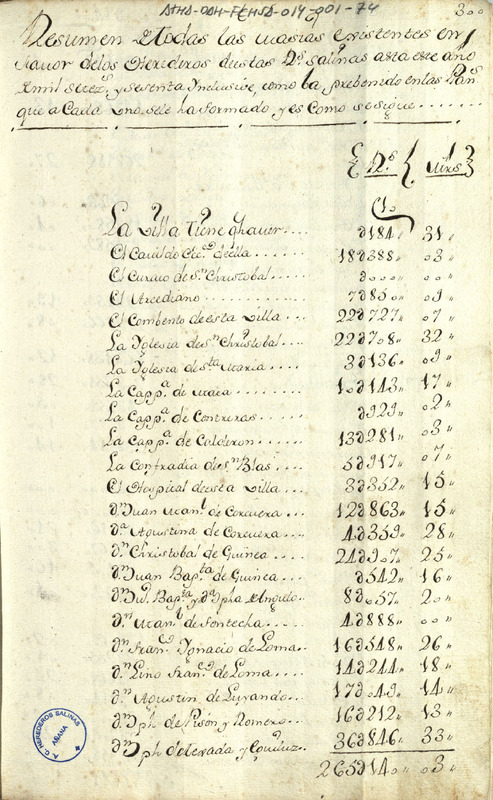 ATHA-DAH-FEHSA-014-001-74
300
Resumen de todas las existentes en
favor de los Herederos de estas Rs. Salinas asta este año
de mil setezs. y sesenta Inclusive, como la prebenido en las
que a Cada Uno se le ha formado y es Como se sigue......
Rs. Mrs
La Villa tiene q haver.... ∂184,, 31,,
El Cavildo Ecco. de ella... 18∂388,, 03,,
El Curato de Sn. Christobal.... ∂000,, 00,,
El Arcediano............ 7∂850,, 09,,
El Combento de esta Villa.... 22∂727,, 07,,
La Yglesia de Sn. Christobal... 22∂708,, 32,,
La Yglesia de Sta. Maria.... 3∂136,, 09,,
La Capp.a de 10∂143,, 17,,
La Capp.a de Contreras..... ∂929,, 02,,
La Capp.a de Calderon...... 13∂281,, 03,,
La Confradia de Sn. Blas.... 5∂917,, 07,,
El Hospital de esta Villa.... 3∂352,, 15,,
Dn. Juan Manl. de Corcuera... 12∂863,, 15,,
Da. Agustina de Corcuera... 4∂359,, 28,,
Dn. Christobal de Guinea... 24∂907,, 25,,
Dn. Juan Bapta. de Guinea... ∂542,, 16,,
Bapta. y Dn. Jph de Angulo.. 8∂057,, 20,,
Dn. Manl. de Fontecha.... 4∂888,, 00,,
Dn. Franco. Ignacio de Loma.. 16∂548,, 26,,
Dn. Lino Franco. de Loma.... 14∂244,, 18,,
Dn. Agustin de Luyando... 17∂049,, 14,,
Dn. Jph de Pison y Romero... 16∂212,, 13,,
Dn. Jph de Terada y 36∂846,, 33,,
265∂140,, 03,,
A. C. HEREDEROS SALINAS
AÑANA